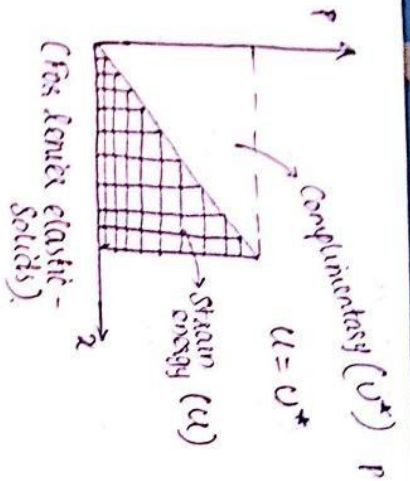 P
Complimentary (U*)
P
U = U*
Strain
energy (U)
x
(For linear elastic-
Solids).